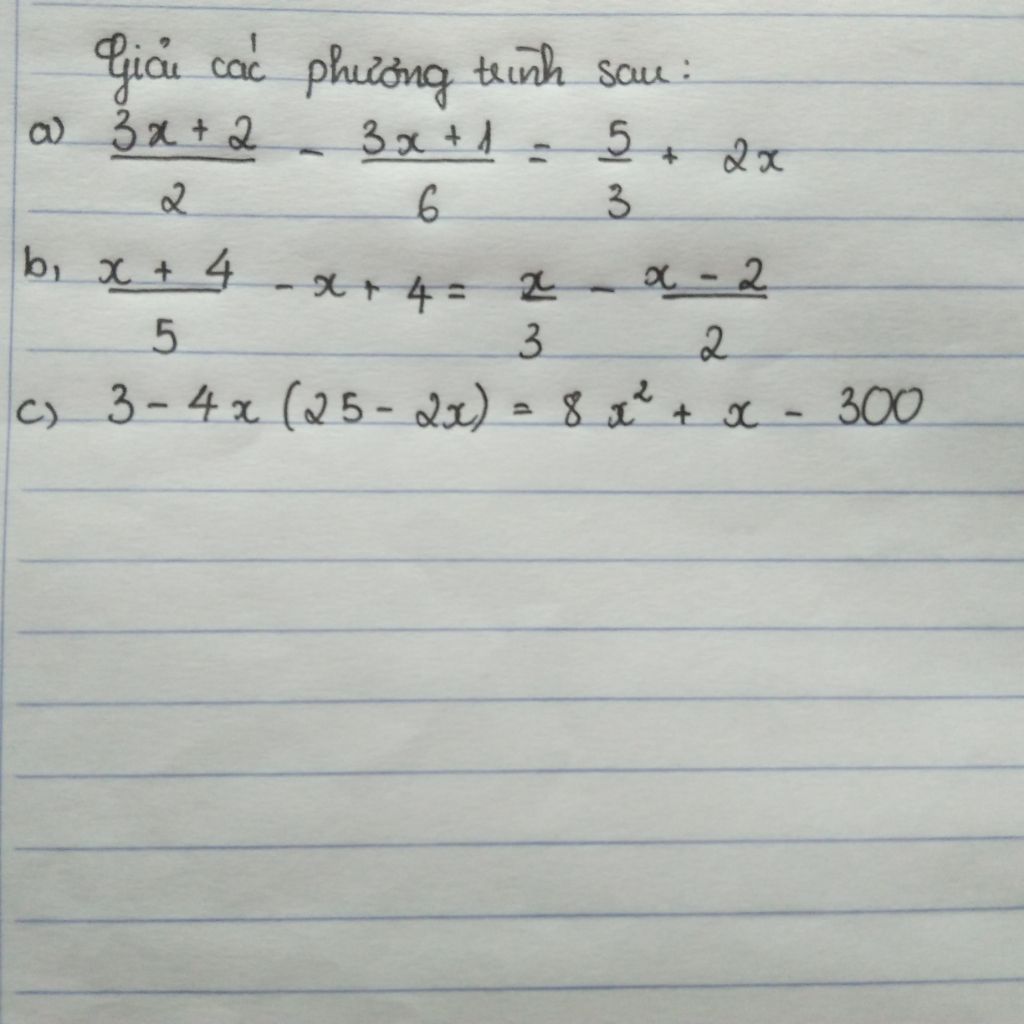 Giải các phương trình sau:
a) \frac{3x + 2}{2} - \frac{3x + 1}{6} = \frac{5}{3} + 2x
b, \frac{x + 4}{5} - x + 4 = \frac{x}{3} - \frac{x - 2}{2}
c) 3 - 4x (25 - 2x) = 8x² + x - 300